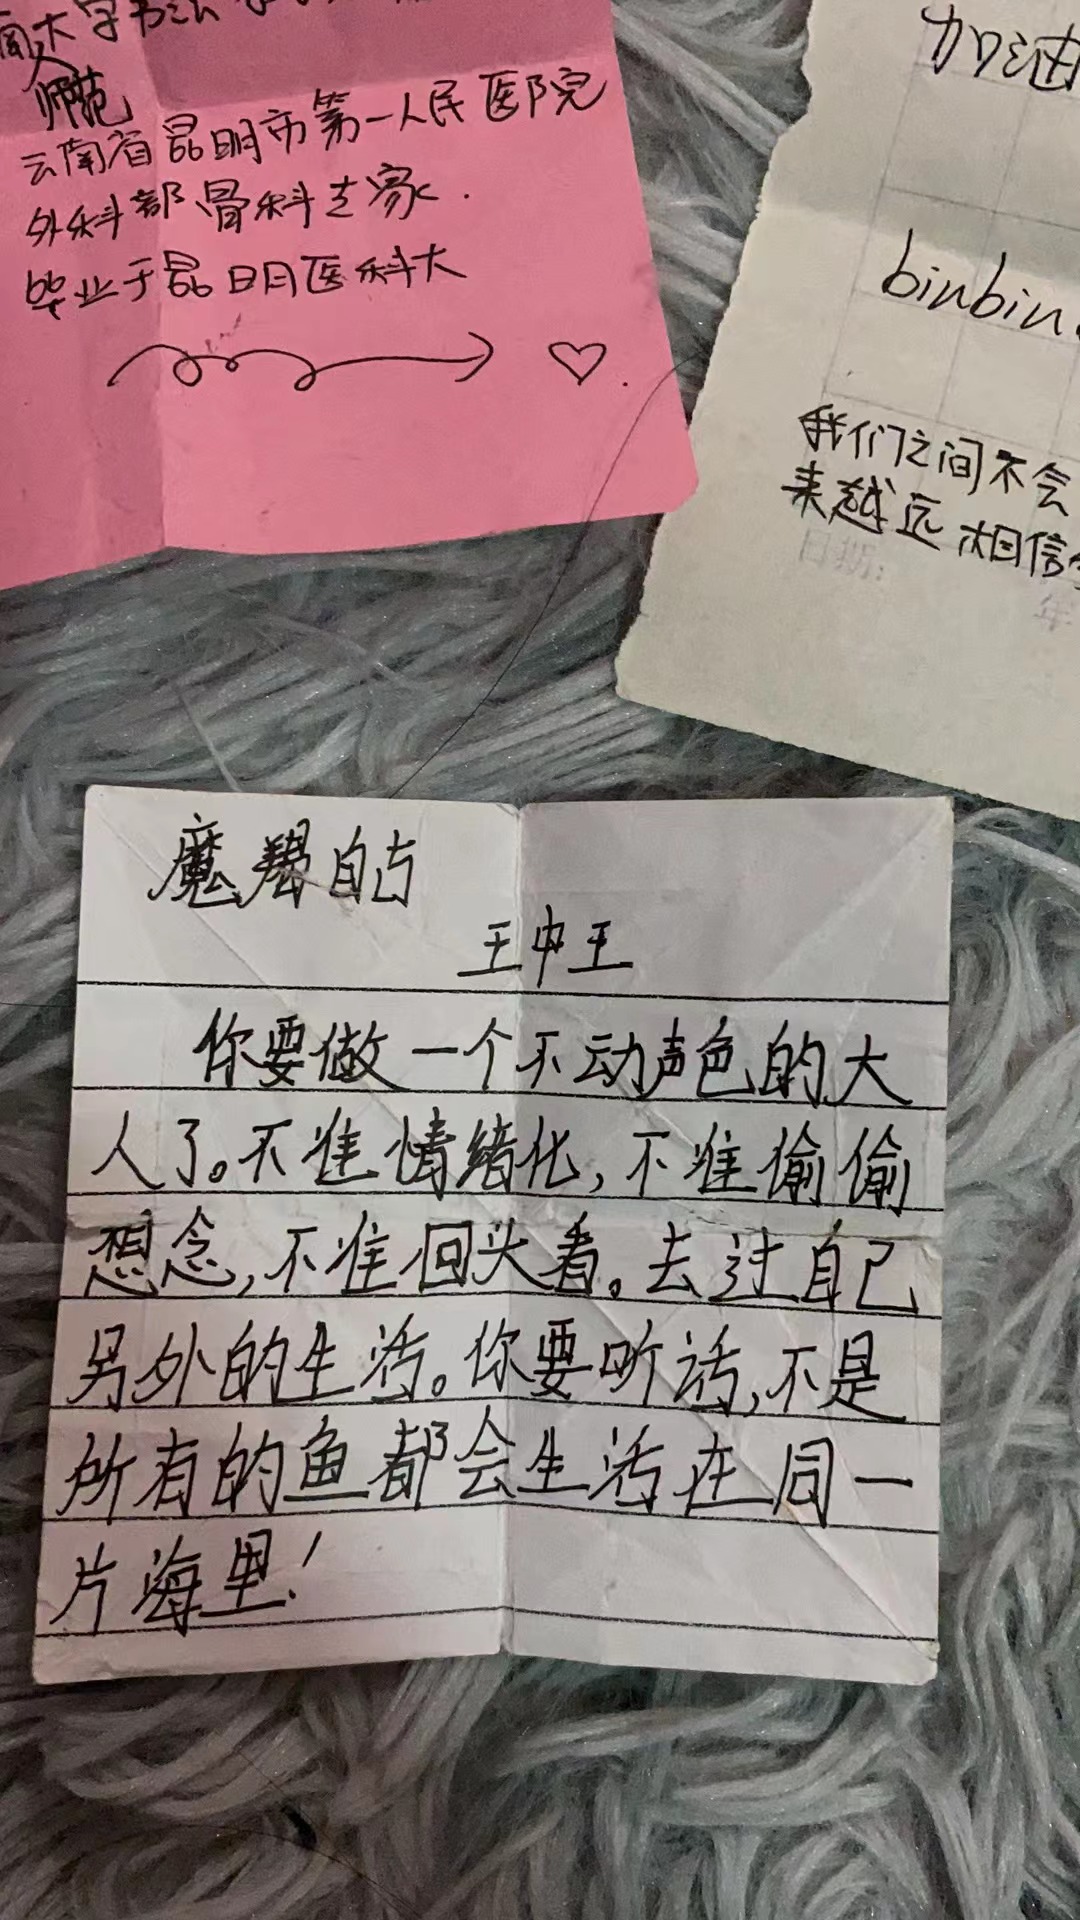 云南省昆明市第一人民医院
外科部骨科专家.
毕业于昆明医科大
师范
加油
binbin
我们之间不会
来越远 相信
日期:
年
魔羯的
王中王
你要做一个不动声色的大
人了。不准情绪化,不准偷偷
想念,不准回头看。去过自己
另外的生活。你要听话,不是
所有的鱼都会生活在同一
片海里!